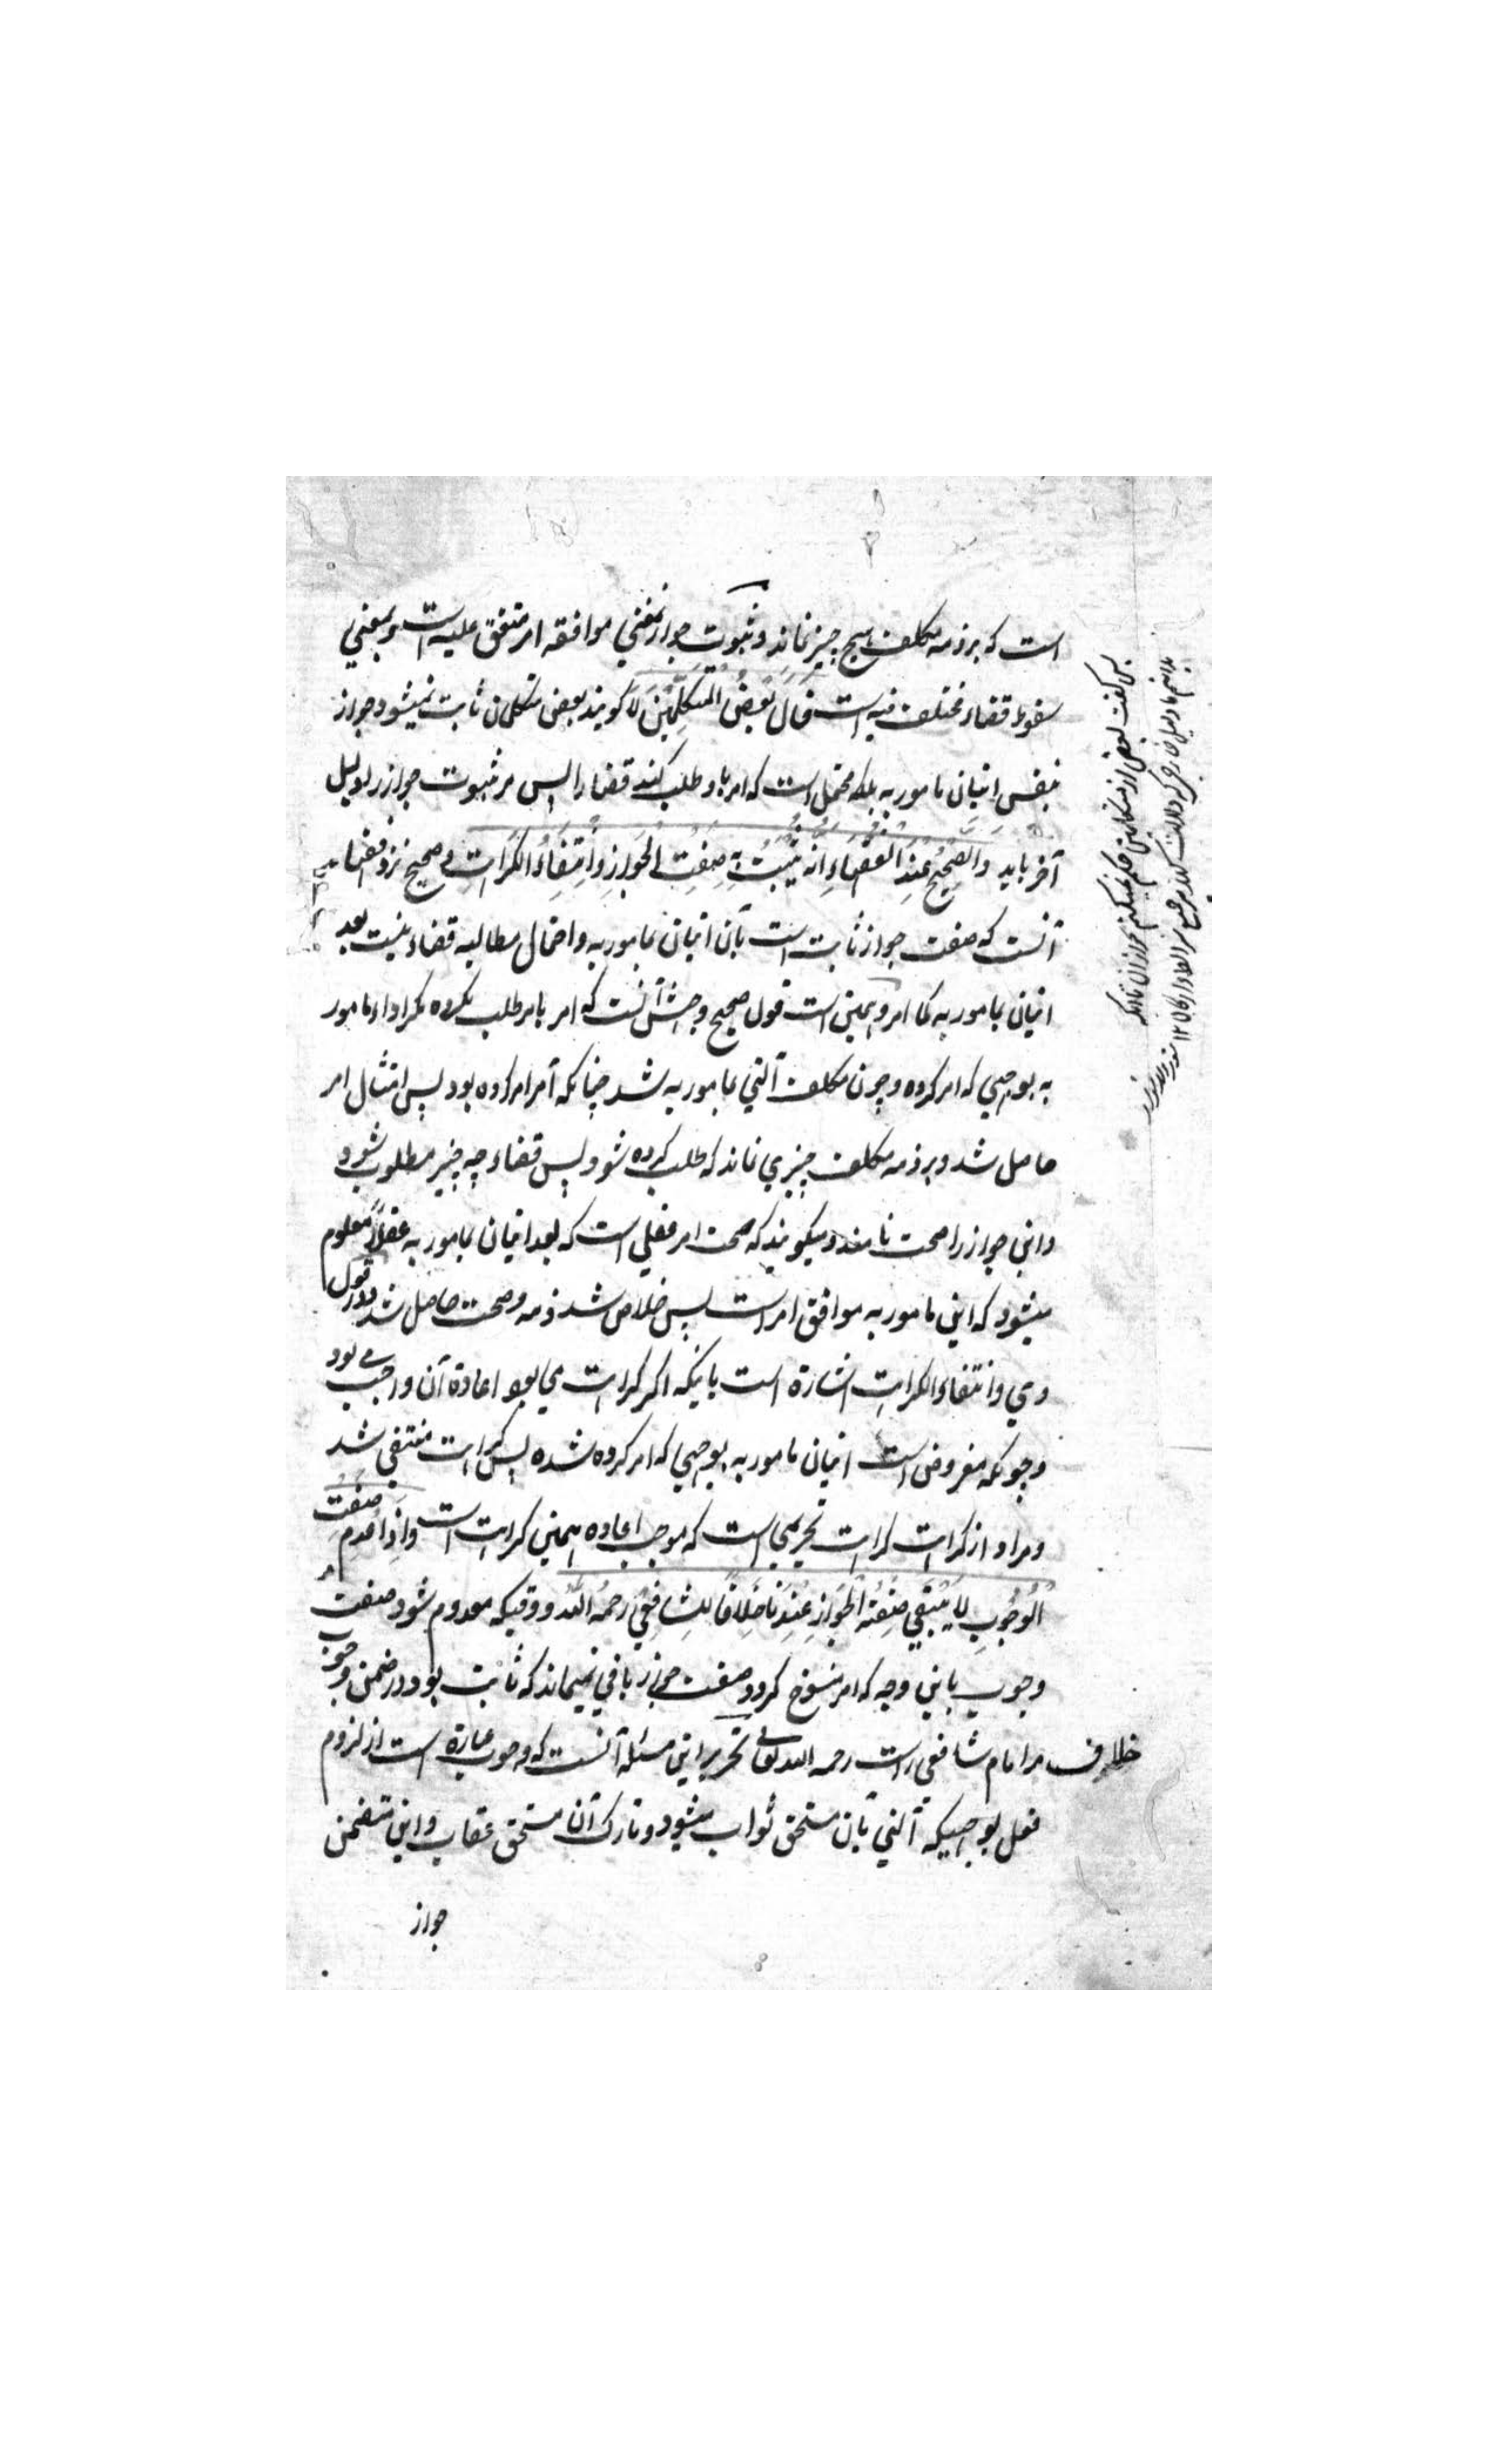 است که بر ذمه مکلف هیچ چیز نماند و ثبوت جواز بمعني موافقه امر متفق علیه است و بمعني
سقوط قضاء مختلف فیه است قَالَ بَعْضُ الْمُتَكَلِّمِیْنَ لَا کویند بعض متکلمان ثابت نمیشود جواز
بنفس اتیان مامور به بلکه محتمل است که امر باو طلب کند قضا را پس مر ثبوت جواز را دلیل
آخر باید وَالصَّحِیْحُ عِنْدَ الْفُقَهَاءِ اَنَّه یَثْبُتُ بِهِ صِفَتُ الْجَوَازِ وَاِنْتِفَاءُ الْكَرَاهَتِ و صحیح نزد فقهاء
آنست که صفت جواز ثابت است بآن اتیان بمامور به و احتمال مطالبه قضاء نیست بعد
اتیان بمامور به کما امر و همین است قول صحیح وجهش آنست که امر بامر طلب نکرده مکر اداء مامور
به بوجهي که امر کرده و چون مکلف آتي بمامور به شد چنانکه آمر امر کرده بود پس امتثال امر
حاصل شد و بر ذمه مکلف چیزي نماند که طلب کرده شود پس قضاء چه چیز مطلوب شود
و این جواز را صحت نامند و میکویند که صحت امر عقلي است که بعد اتیان بمامور به عقلاً معلوم
میشود که این مامور به موافق امر است پس خلاص شد ذمه و صحت حاصل شد و در قول
وي وانتفاء الکراهت اشارة است باینکه اکر کراهت مي بود اعادة آن واجب مي بود
و چونکه مفروض است اتیان مامور به بوجهي که امر کرده شده پس کراهت منتفي شد
و مراد از کراهت کراهت تحریمي است که موجب اعاده همین کراهت است وَاِذَا عُدِمَ صِفَتُ
الْوُجُوْبِ لَا یَبْقَي صِفَتُه الْجَوَازِ عِنْدَنَا خِلَافًا لِلشَّافِعِيْ رَحِمَهُ اللّٰهُ و وقتیکه معدوم شود صفت
وجوب باین وجه که امر منسوخ کردد صفت جواز باقي نمیماند که ثابت بود در ضمن وجوب
خلاف مر امام شافعي راست رحمه الله تعالی تحریر این مسئله آنست که وجوب عبارة است از لزوم
فعل بوجهیکه آتي بآن مستحق ثواب میشود و تارک آن مستحق عقاب و این متضمن
جواز
پس کفت بعض از متکلمین حکم نمیکنم بجواز آن تا آنکه